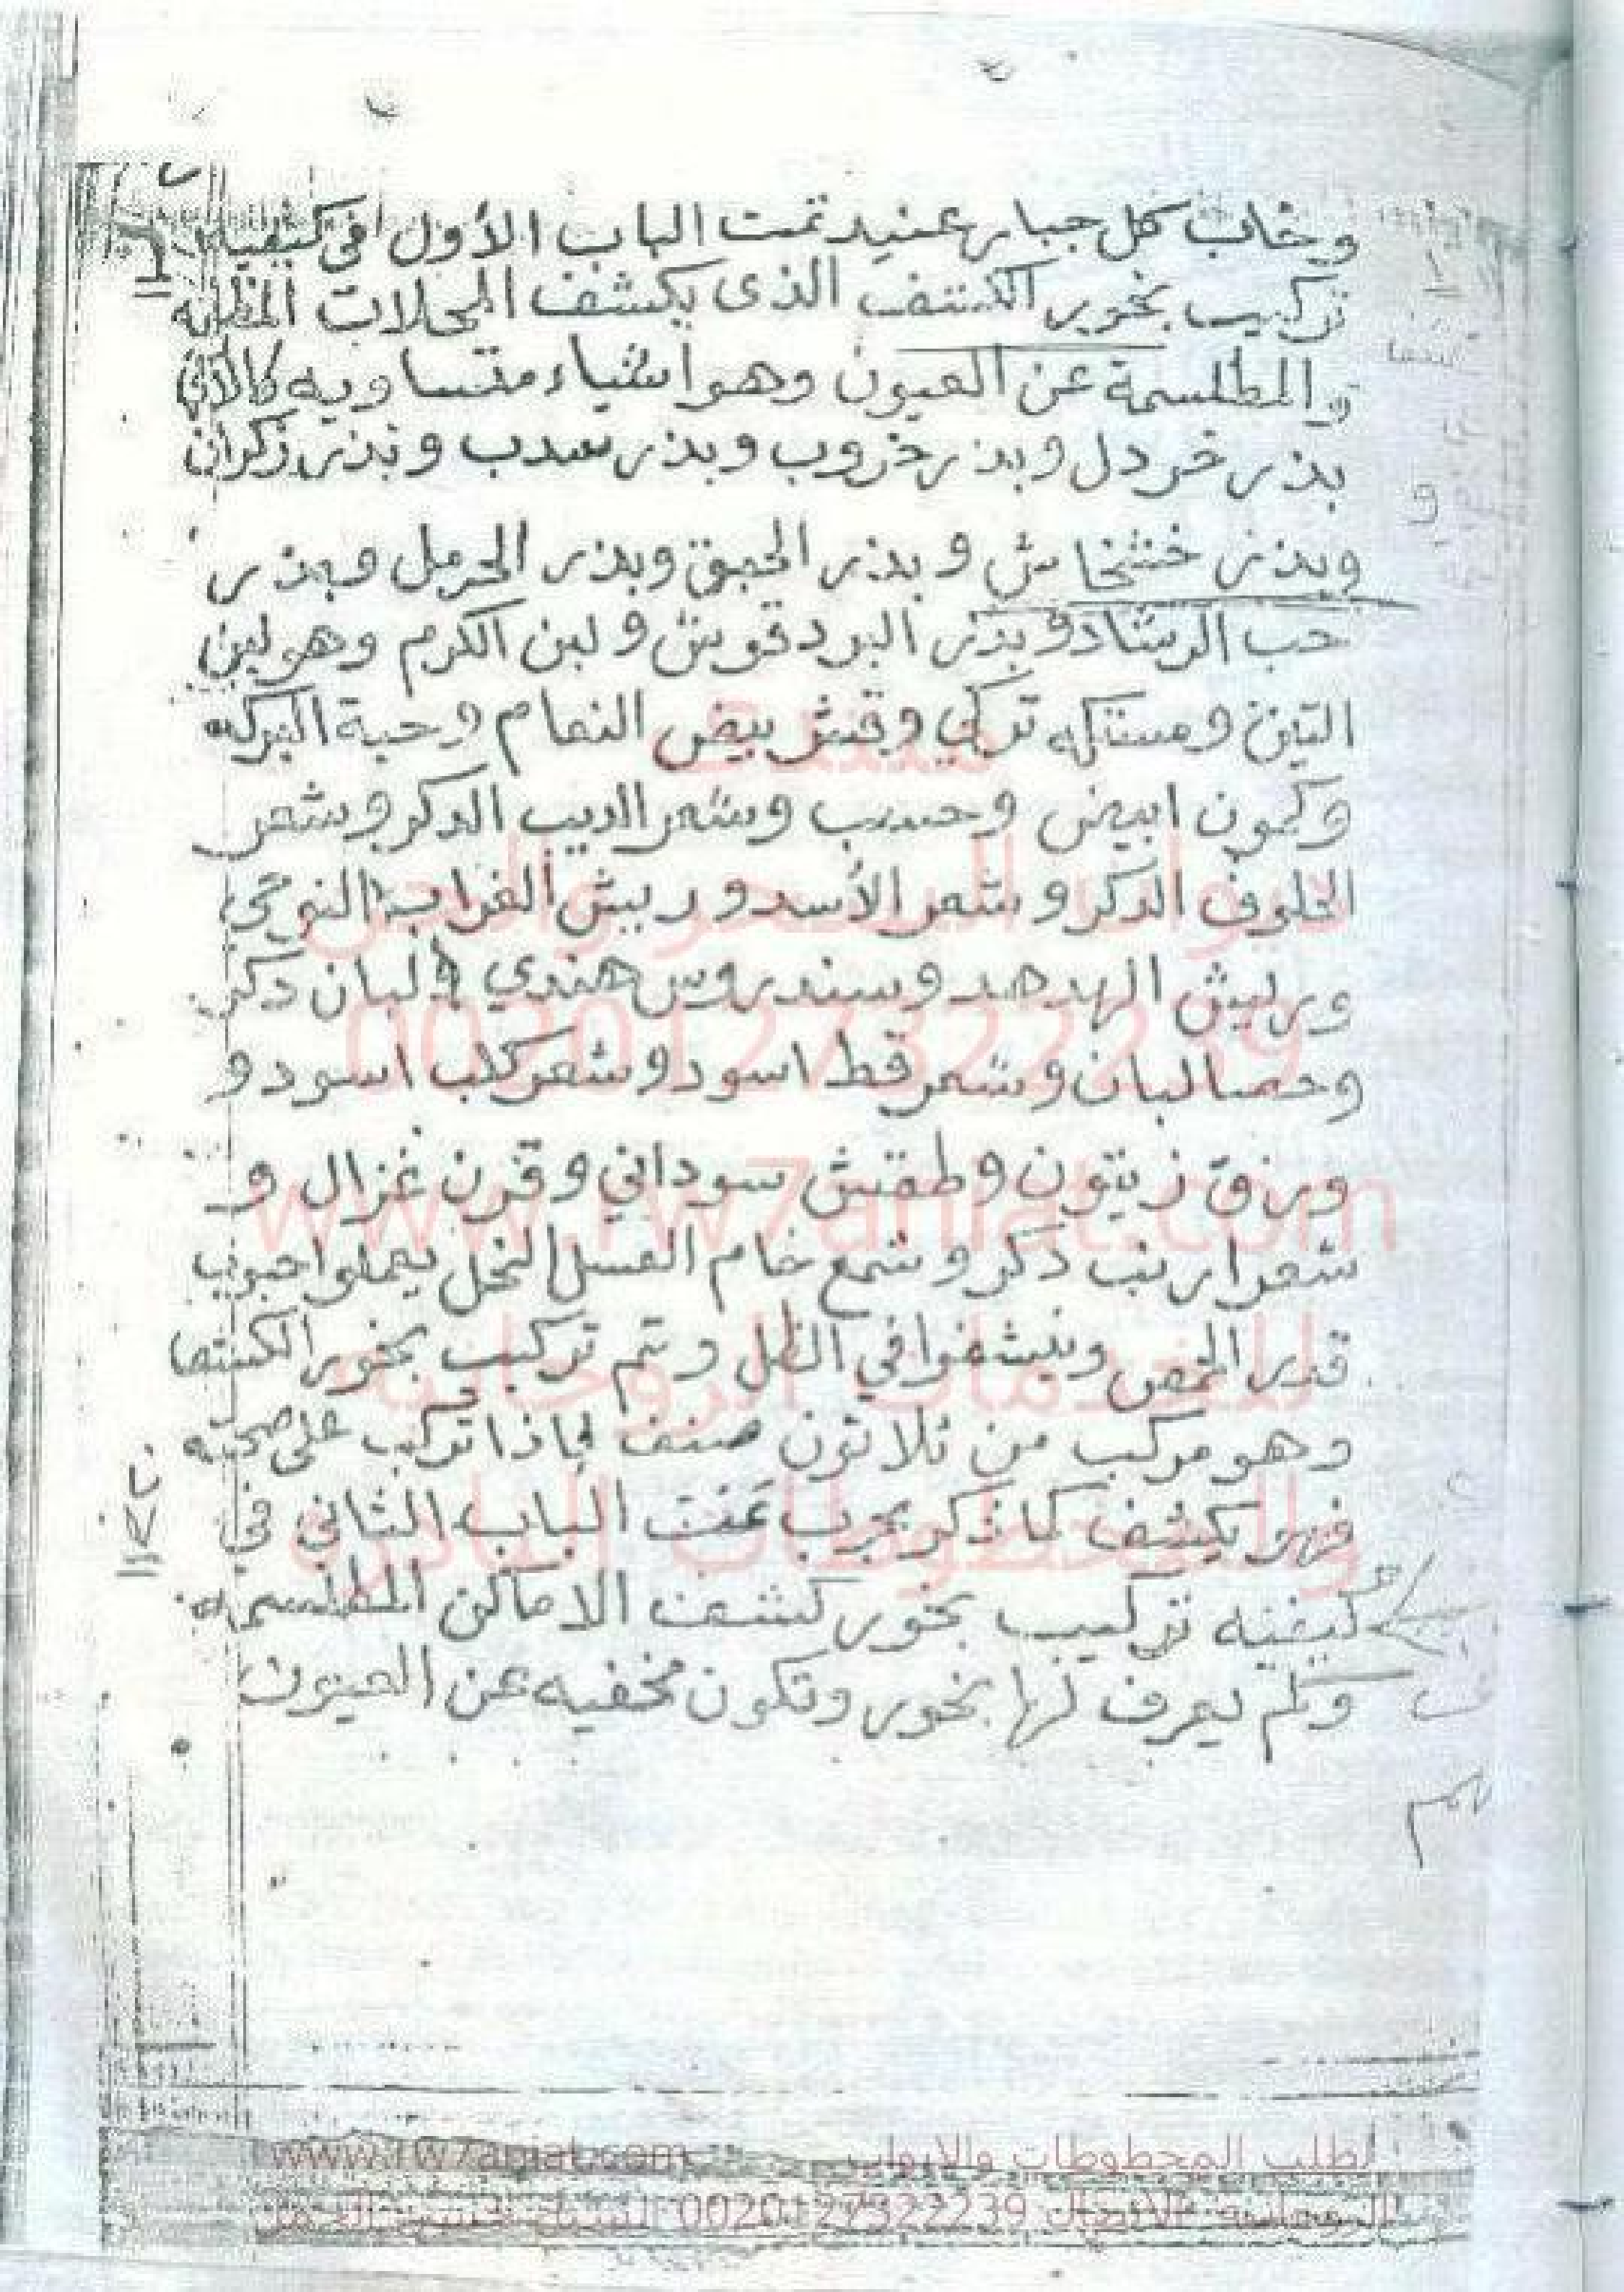 وخاب كل جبار عنيد تمت الباب الأول في كيفية
تركيب بخور الكشف الذى يكشف المحلات
والمطلسمة عن العيون وهو اشياء متساويه كالاتي
بذر خردل وبذر خروب وبذر سدب وبذر زكران
وبذر خشخاش وبذر الحبق وبذر الحرمل وبذر
حب الرشاد وبذر البردقوش ولبن الكرم وهو لبن
التين ومستكه تركي وقشر بيض النعام وحبة البركه
وكمون ابيض وشعر الديب الدكر وشعر
الحلوف الدكر وشعر الأسد وريش الغراب النوحي
وريش الهدهد وسندروس هندي ولبان دكر
وحصا لبان وشعر قط اسود وشعر كلب اسود و
ورق زيتون وطقش سوداني وقرن غزال و
شعر ارنب دكر وشمع خام العسل النحل يعملوا حبوب
قدر الحمص وينشفوا في الظل وتم تركيب بخور
وهو مركب من ثلاثون صنف فإذا تركب على صحته
فهو يكشف كما ذكر مجرب تمت الباب الثاني في
كيفيه تركيب بخور كشف الاماكن المطلسمه
ولم يعرف لها بخور وتكون مخفيه عن العيون
مهم
002012732239
www.rw7aniat.com
للخدمات الروحانية
والمخطوطات النادرة
www.rw7aniat.com لطلب المخطوطات والابواب
الروحانية الاتصال 0020127322239